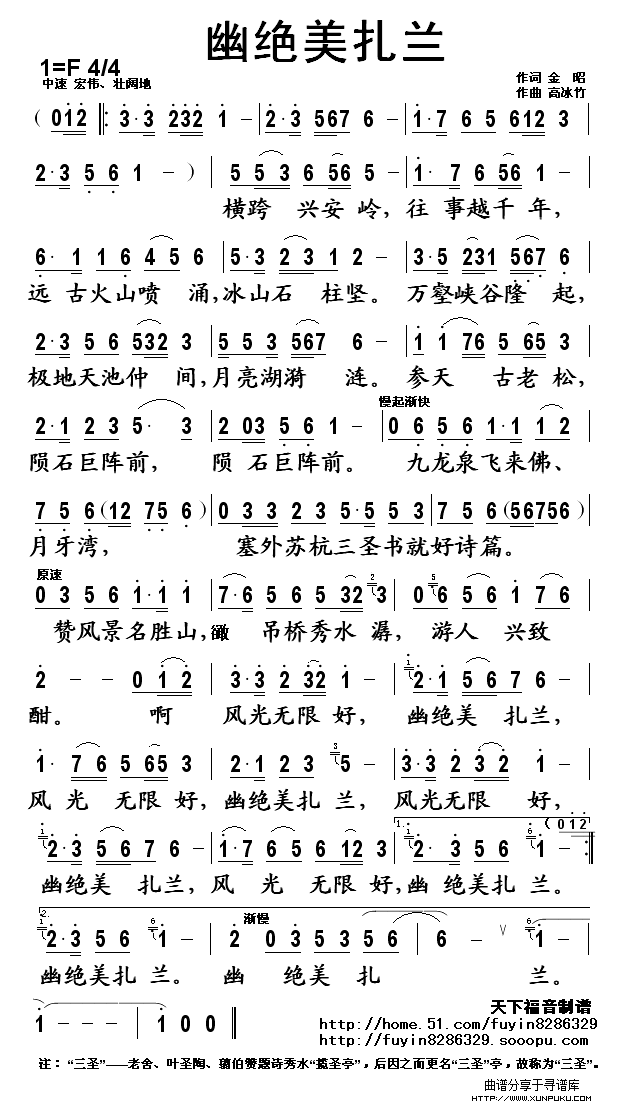 幽绝美扎兰
1=F 4/4
中速 宏伟、壮阔地
作词 金 昭
作曲 高冰竹
( 012 ‖: 3·3 232 1 - | 2·3 567 6 - | 1·7 6 5 612 3 |
2·3 5 6 1 - ) | 5 5 3 6 56 5 - | 1·7 6 56 1 - |
横跨 兴安 岭, 往 事越千 年,
6· 1 1 6 4 5 6 | 5·3 2 3 1 2 - | 3·5 231 567 6 |
远 古火山喷 涌,冰山石 柱坚。万壑峡谷隆 起,
2·3 5 6 532 3 | 5 5 3 567 6 - | 1·1 76 5 65 3 |
极地天池仲 间,月亮湖漪 涟。参天 古老 松,
慢起渐快
2·1 2 3 5· 3 | 2 03 5 6 1 - | 0 6 5 6 1·1 1 2 |
陨石巨阵前, 陨 石巨阵前。 九龙泉飞来佛、
7 5 6 (12 75 6) | 0 3 3 2 3 5·5 5 3 | 7 5 6 (56756) |
月牙湾, 塞外苏杭三圣书就好诗篇。
原速
0 3 5 6 1·1 1 | 7·6 5 6 5 32 3 | 0 6 5 6 1 7 6 |
赞风景名胜山, 吊桥秀水 潺, 游人 兴致
2 - - 0 1 2 | 3·3 2 32 1 - | 2·1 5 6 7 6 - |
酣。 啊 风光无限 好, 幽绝美 扎兰,
1· 7 6 5 65 3 | 2·1 2 3 5 - | 3·3 2 3 2 1 - |
风 光 无限 好,幽绝美扎 兰, 风光无限 好,
2·3 5 6 7 6 - | 1·7 6 5 6 12 3 | 1. 2·3 5 6 1 - :‖ ( 012
幽绝美 扎兰,风 光 无限 好,幽 绝美扎 兰。
2. 渐慢
2·3 5 6 1 - | 2 0 3 5 3 5 6 | 6 - V 1 - |
幽绝美扎 兰。 幽 绝美 扎 兰。
1 - - - | 1 0 0 ‖
天下福音制谱
http://home.51.com/fuyin8286329
http://fuyin8286329.sooopu.com
注:“三圣”——老舍、叶圣陶、翦伯赞题诗秀水“揽圣亭”,后因之而更名“三圣”亭,故称为“三圣”。
曲谱分享于寻谱库
WWW.XUNPUKU.COM